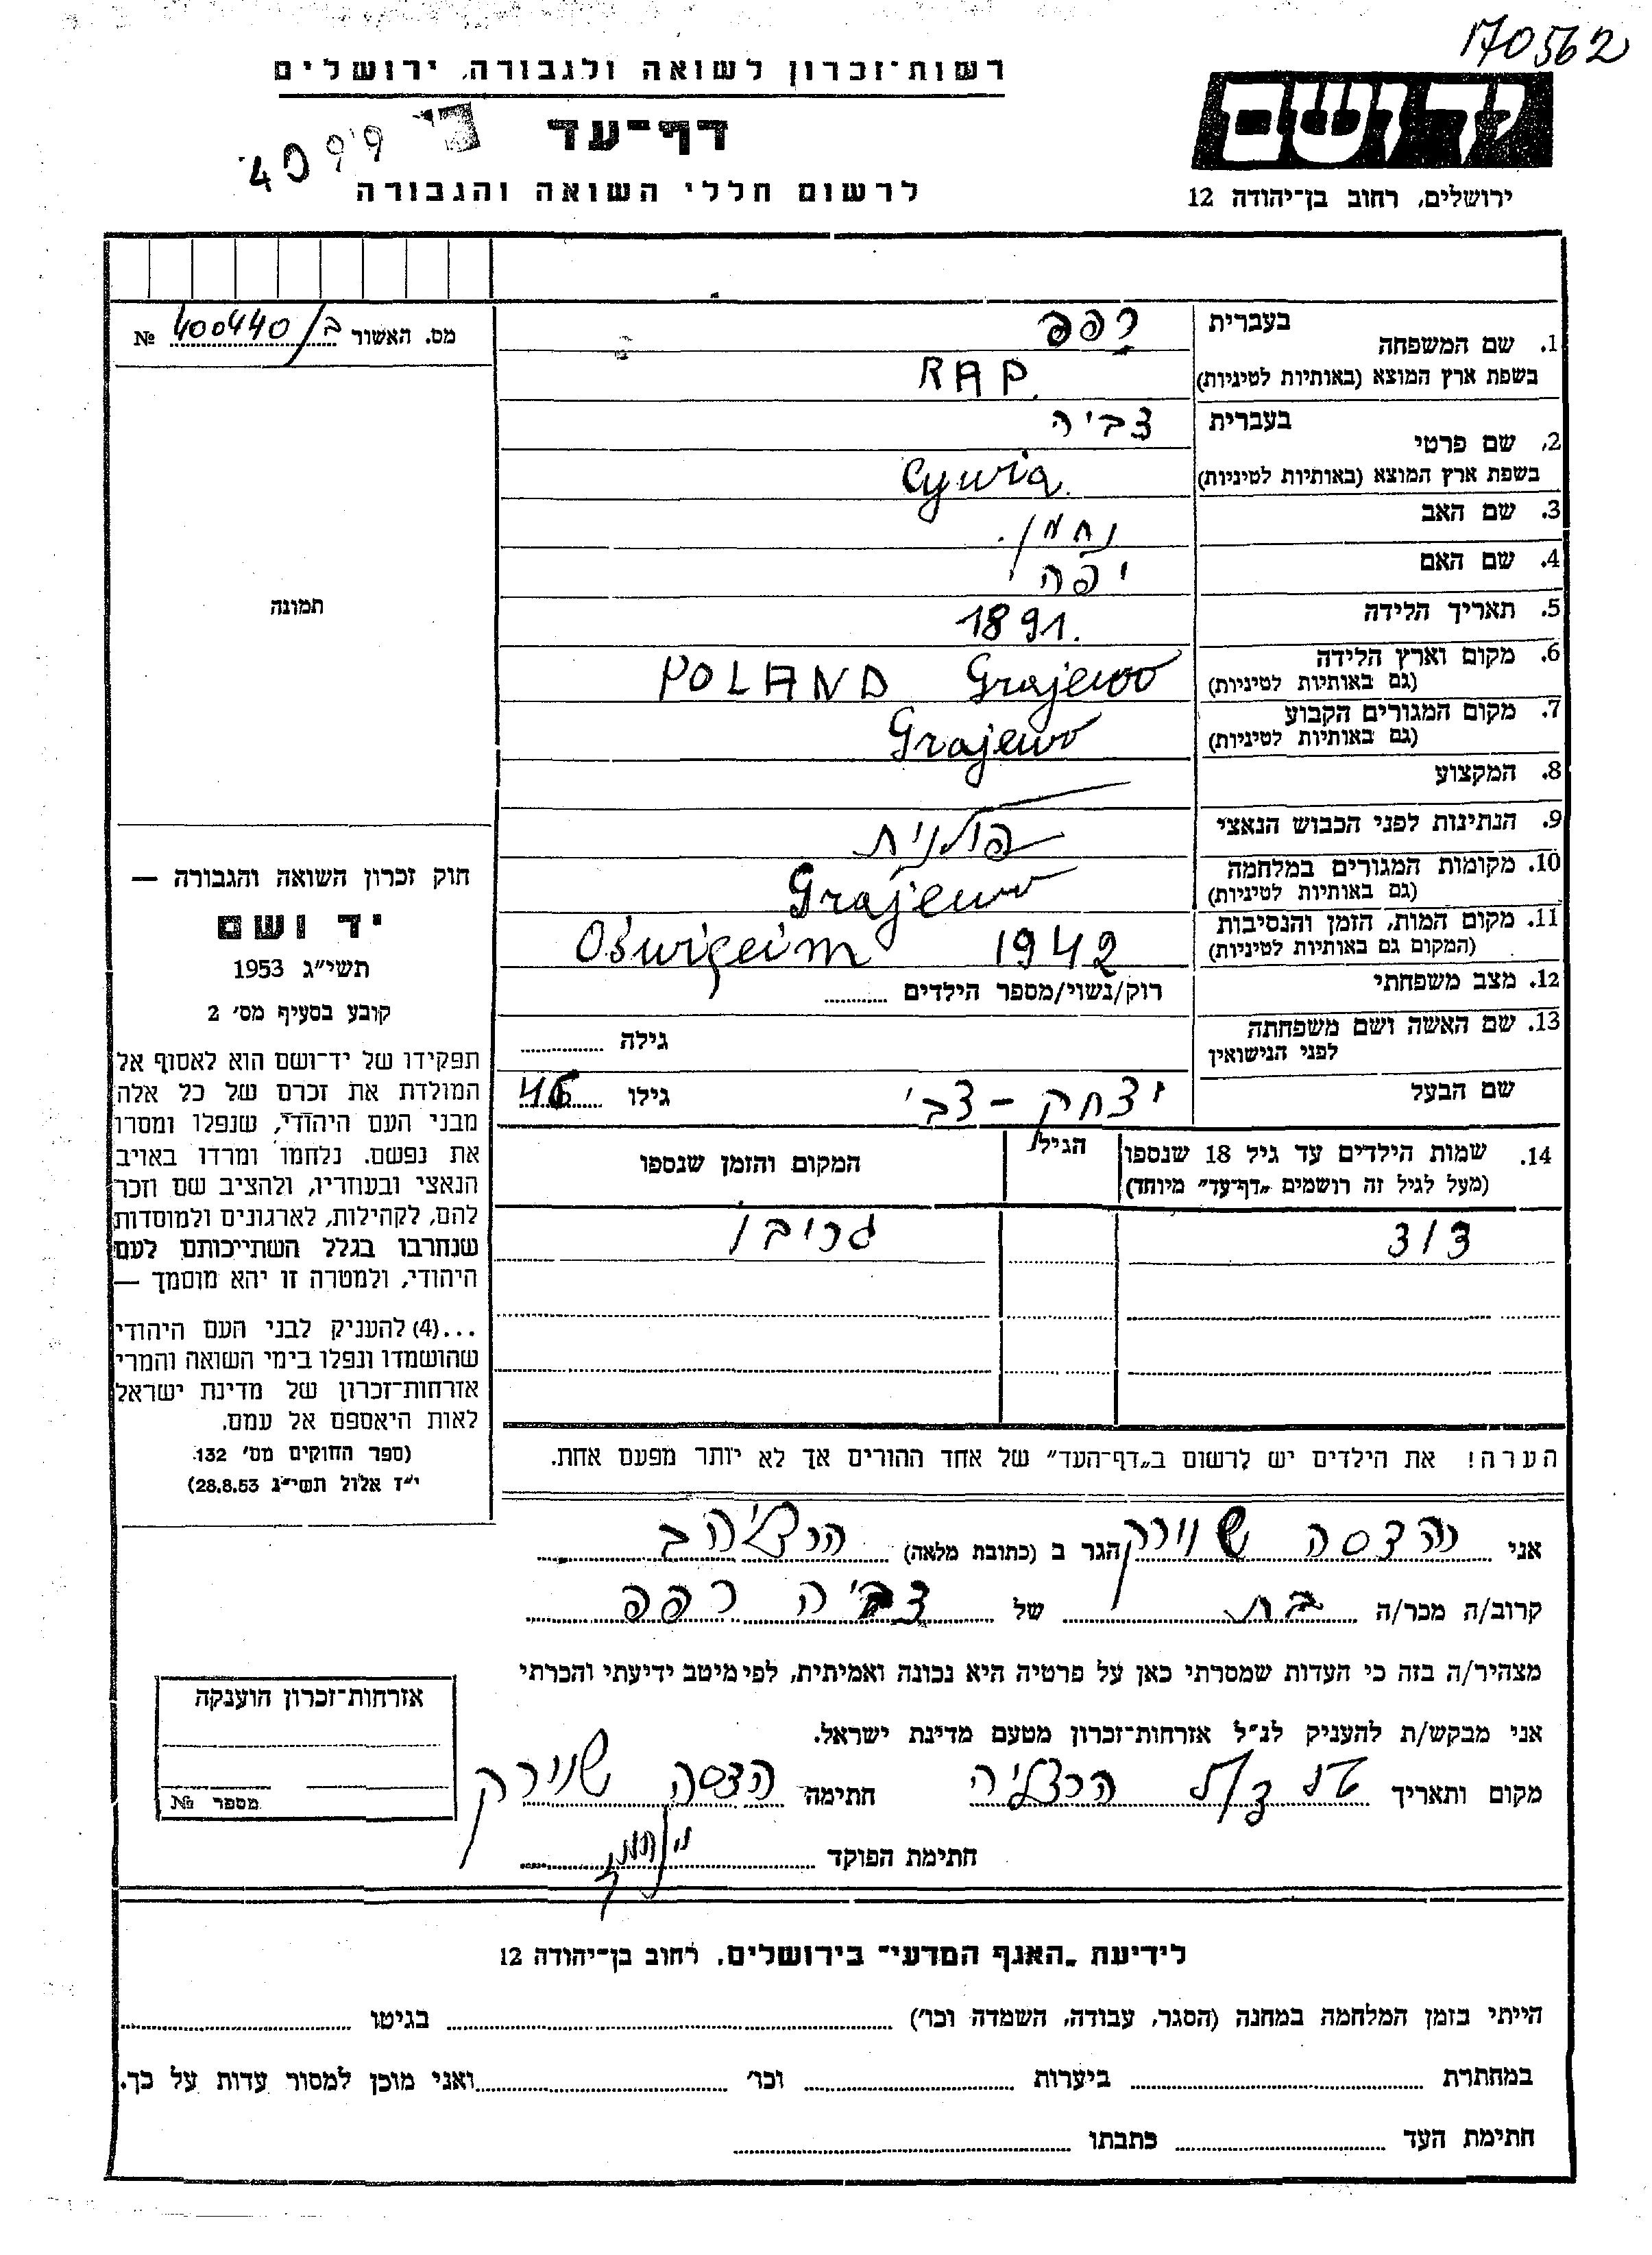 170562
רשות־זכרון לשואה ולגבורה, ירושלים
יד ושם
דף־עד
4099
לרשום חללי השואה והגבורה
ירושלים, רחוב בן־יהודה 12
מס. האשור ב/400440 №
1. שם המשפחה
בעברית
רפפ
בשפת ארץ המוצא (באותיות לטיניות)
RAP.
2. שם פרטי
בעברית
צביה
בשפת ארץ המוצא (באותיות לטיניות)
Cywia.
3. שם האב
נחמן.
4. שם האם
יפה
5. תאריך הלידה
1891.
6. מקום וארץ הלידה
(גם באותיות לטיניות)
POLAND Grajewo
7. מקום המגורים הקבוע
(גם באותיות לטיניות)
Grajewo
8. המקצוע
9. הנתינות לפני הכבוש הנאצי
פולנית
10. מקומות המגורים במלחמה
(גם באותיות לטיניות)
Grajewo
11. מקום המות, הזמן והנסיבות
(המקום גם באותיות לטיניות)
Oświęcim 1942
12. מצב משפחתי
רוק/נשוי/מספר הילדים
13. שם האשה ושם משפחתה
לפני הנישואין
גילה
שם הבעל
יצחק - צבי
גילו 46
14. שמות הילדים עד גיל 18 שנספו
(מעל לגיל זה רושמים „דף־עד” מיוחד)
הגיל
המקום והזמן שנספו
דוד
גריבו
הערה! את הילדים יש לרשום ב„דף־העד” של אחד ההורים אך לא יותר מפעם אחת.
תמונה
חוק זכרון השואה והגבורה —
יד ושם
תשי״ג 1953
קובע בסעיף מס׳ 2
תפקידו של יד־ושם הוא לאסוף אל
המולדת את זכרם של כל אלה
מבני העם היהודי, שנפלו ומסרו
את נפשם. נלחמו ומרדו באויב
הנאצי ובעוזריו, ולהציב שם וזכר
להם, לקהילות, לארגונים ולמוסדות
שנחרבו בגלל השתייכותם לעם
היהודי, ולמטרה זו יהא מוסמך —
...(4) להעניק לבני העם היהודי
שהושמדו ונפלו בימי השואה והמרי
אזרחות־זכרון של מדינת ישראל
לאות היאספם אל עמם.
(ספר החוקים מס׳ 132
י״ז אלול תשי״ג 28.8.53)
אני הדסה שוירק הגר ב (כתובת מלאה) הרצליה ב
קרוב/ה מכר/ה בת של צביה רפפ
מצהיר/ה בזה כי העדות שמסרתי כאן על פרטיה היא נכונה ואמיתית, לפי מיטב ידיעתי והכרתי
אני מבקש/ת להעניק לנ״ל אזרחות־זכרון מטעם מדינת ישראל.
מקום ותאריך הרצליה חתימה הדסה שוירק
חתימת הפוקד
אזרחות־זכרון הוענקה
מספר №
לידיעת „האגף המדעי” בירושלים, רחוב בן־יהודה 12
הייתי בזמן המלחמה במחנה (הסגר, עבודה, השמדה וכו׳) בגיטו
במחתרת ביערות וכו׳ ואני מוכן למסור עדות על כך.
חתימת העד כתבתו